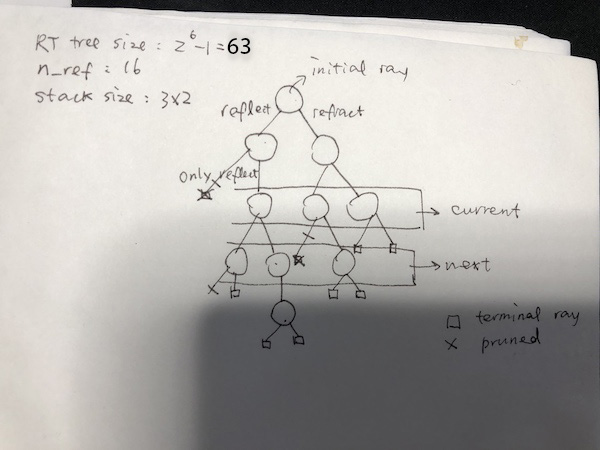 RT tree size : 2^6-1=63
n_ref : 16
stack size : 3x2
initial ray
reflect
refract
only reflect
current
next
□ terminal ray
x pruned